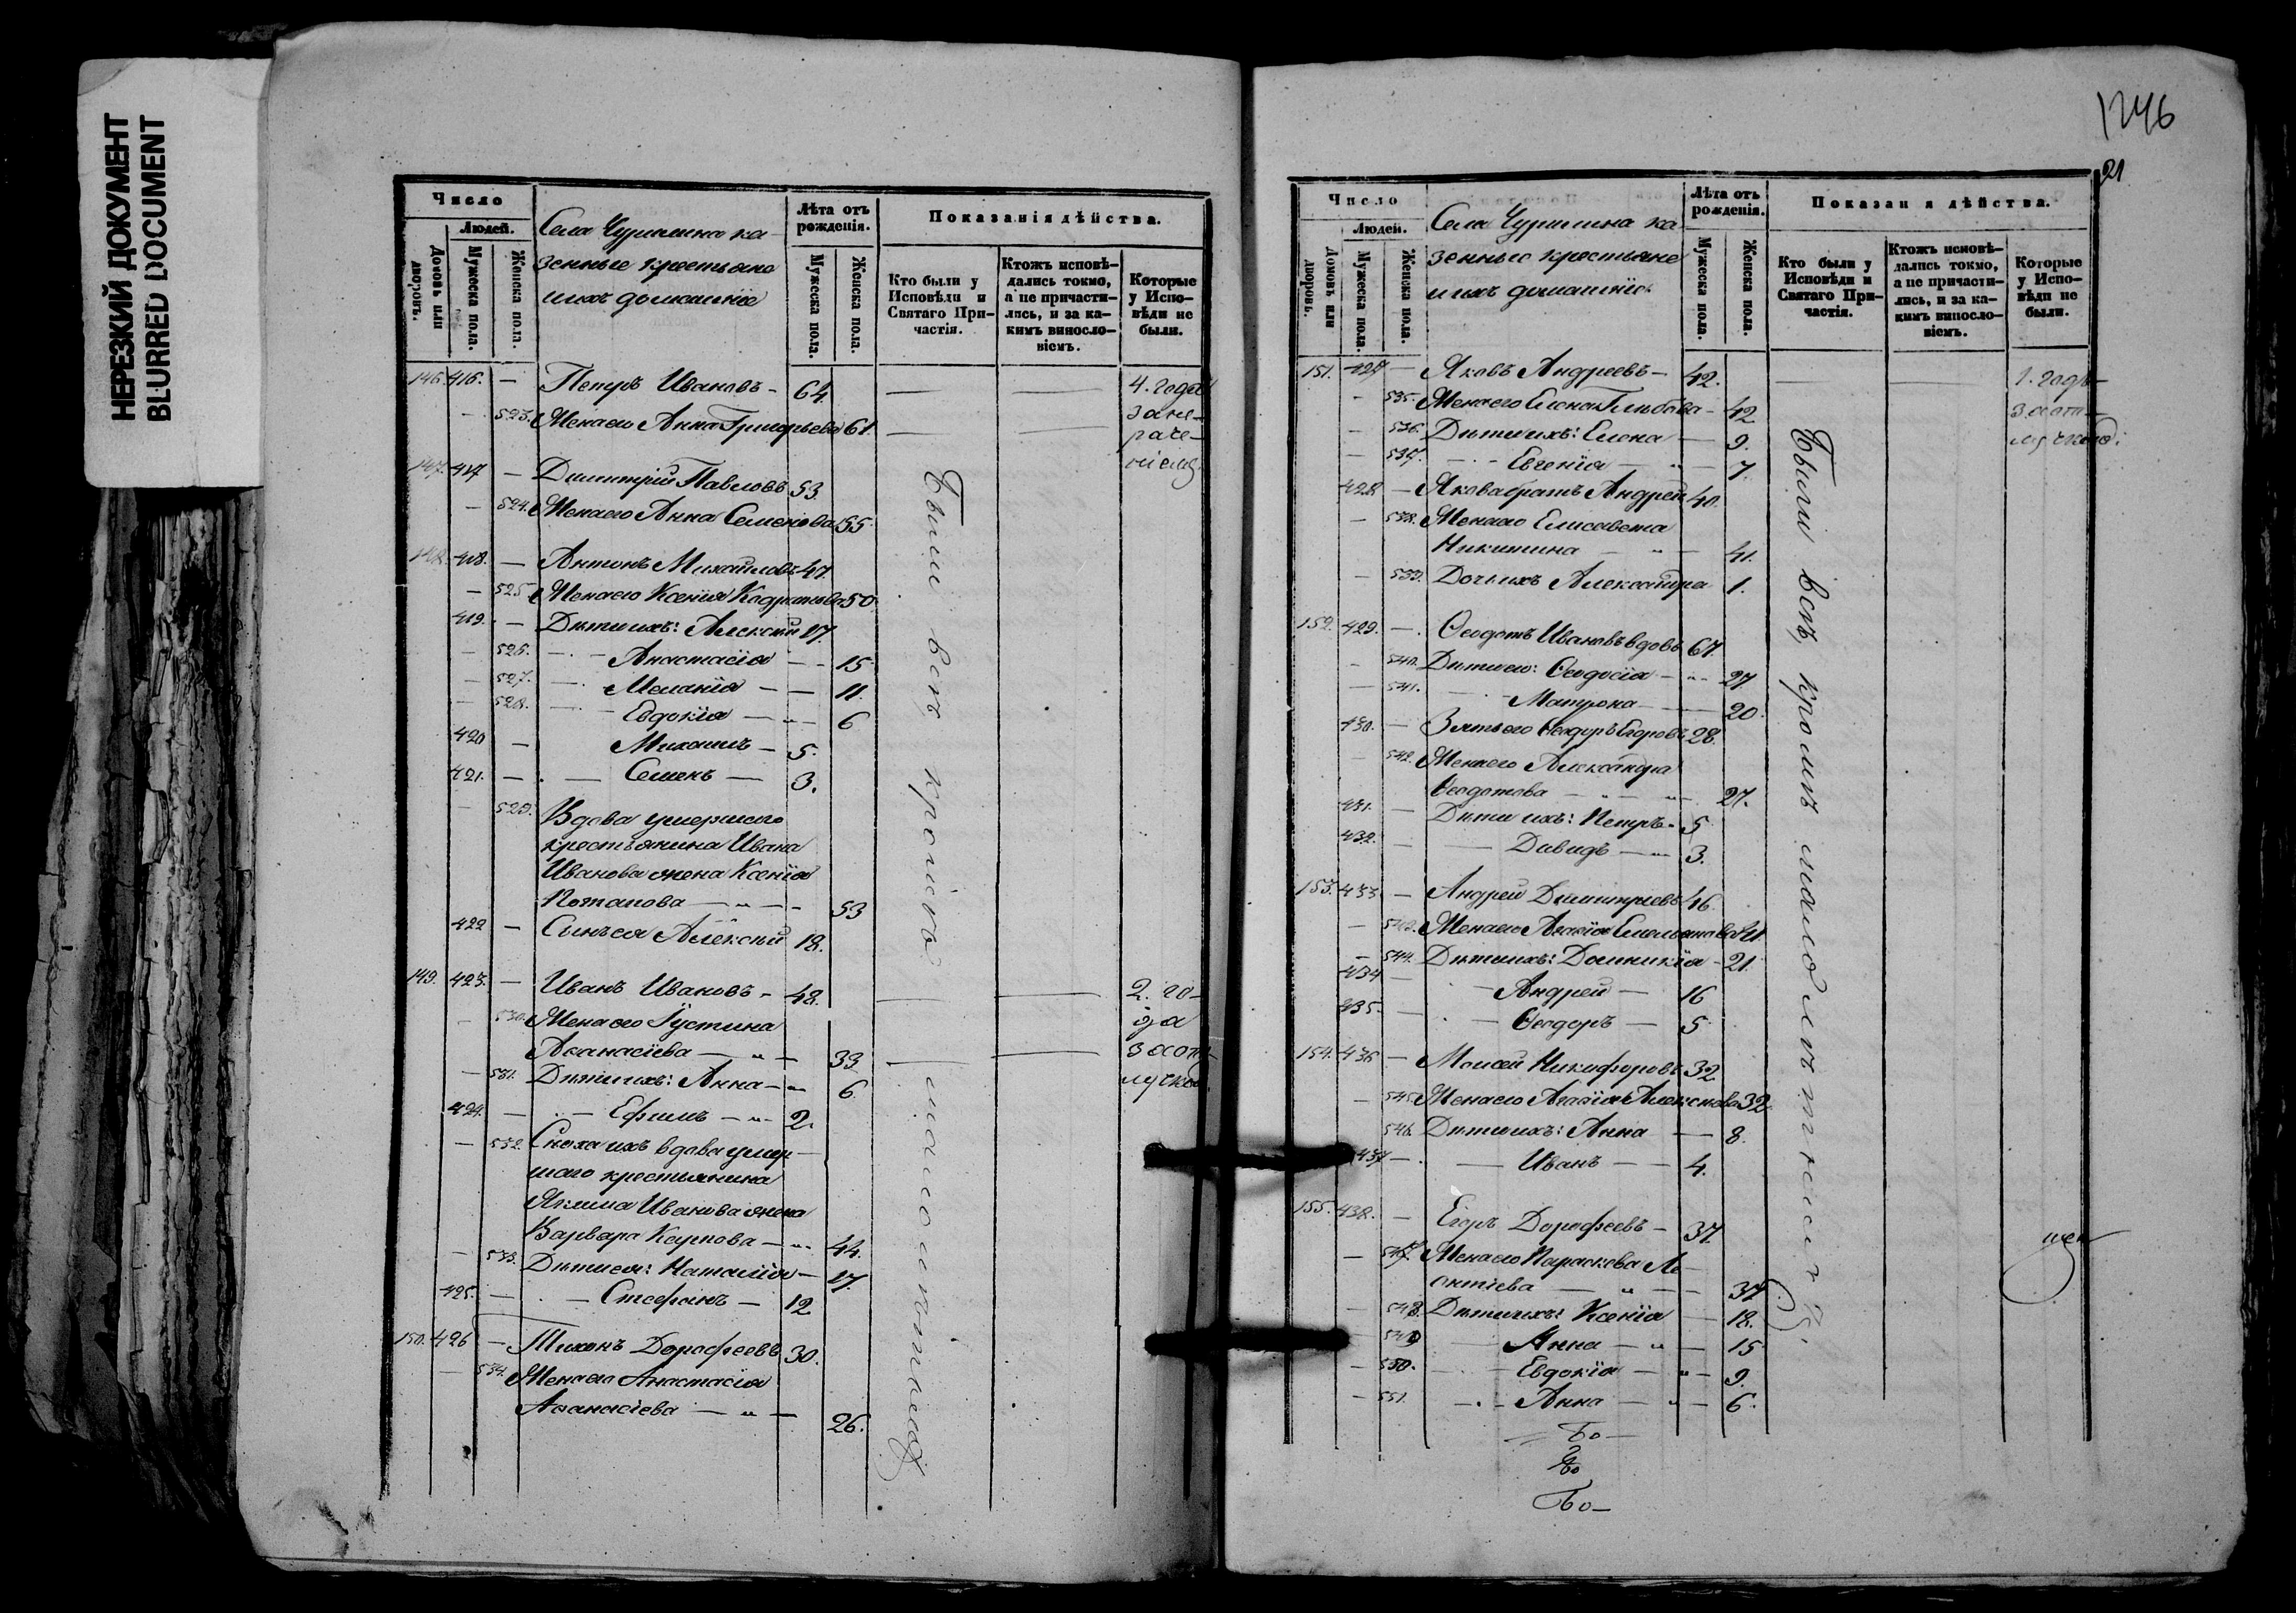 НЕРЕЗКИЙ ДОКУМЕНТ
BLURRED DOCUMENT
Число
Людей.
Домовъ или дворовъ.
Мужеска пола.
Женска пола.
Села Чурилина ка-
зенные крестьяне
и ихъ домашніе
Лѣта отъ рожденія.
Мужеска пола.
Женска пола.
Показанія дѣйства.
Кто были у Исповѣди и Святаго При-частія.
Ктожъ исповѣ-дались токмо, а не причасти-лись, и за ка-кимъ винослo-віемъ.
Которые у Испо-вѣди не были.
146. 416. — Петръ Ивановъ - 64. — — 4. года
— 523. Жена его Анна Григорьева 61. — — за не-
раче-
ніемъ
147. 417 — Димитрій Павловъ 53
— 524. Жена его Анна Семенова 55
148. 418. — Антонъ Михайловъ 47.
— 525. Жена его Ксенія Кодратова 50
419. — Дѣти ихъ: Алексѣй 17.
— 526. Анастасія — 15
— 527. Меланія — 11.
— 528. Евдокія — 6
420 — Михаилъ — 5.
421. — Семенъ — 3.
— 529. Вдова умершаго
крестьянина Ивана
Иванова жена Ксенія
Потапова — 53
422 — Сынъ ея Алексѣй 18.
149. 423. — Иванъ Ивановъ - 48. — — 2. го-
да
— 530. Жена его Іустина
Аѳанасіева — 33 — — за отл-
учкою
— 531. Дѣти ихъ: Анна — 6.
424. — Ефимъ — 2.
— 532. Сноха ихъ вдова умер-
шаго крестьянина
Якима Иванова жена
Варвара Карпова — 44.
— 533. Дѣти ея: Наталія — 17.
425. — Стефанъ — 12
150. 426 — Тихонъ Дорофеевъ 30.
— 534. Жена его Анастасія
Аѳанасіева — 26.
Были всѣ кромѣ малолѣтнихъ
1246
21
Число
Людей.
Домовъ или дворовъ.
Мужеска пола.
Женска пола.
Села Чурилина ка-
зенные крестьяне
и ихъ домашніе
Лѣта отъ рожденія.
Мужеска пола.
Женска пола.
Показан я дѣйства.
Кто были у Исповѣди и Святаго При-частія.
Ктожъ исповѣ-дались токмо, а не причасти-лись, и за ка-кимъ винословіемъ.
Которые у Испо-вѣди не были.
151. 427 — Яковъ Андреевъ — 42. — — 1. годъ
— 535. Жена его Елена Глѣбова - 42 за отл-
учкою.
— 536. Дѣти ихъ: Елена — 9.
— 537. Евгенія — 7.
428 — Якова братъ Андрей 40.
— 538. Жена его Елисавета
Никитина — 41.
— 539. Дочь ихъ Александра 1.
152. 429. — Ѳеодотъ Ивановъ вдовъ 67.
— 540. Дѣти его: Ѳеодосія — 27
— 541. Матрона — 20.
430. — Зять его Ѳеодоръ Егоровъ 28.
— 542. Жена его Александра
Ѳеодотова — 27.
431. — Дѣти ихъ: Петръ - 5
432. — Давидъ — 3.
153. 433 — Андрей Димитріевъ 46.
— 543. Жена его Агаѳія Емельянова 41
— 544. Дѣти ихъ: Домникія - 21.
434 — Андрей — 16
435. — Ѳеодоръ — 5.
154. 436 — Моисей Никифоровъ 32
— 545. Жена его Агаѳія Алексѣева 32
546. Дѣти ихъ: Анна — 8.
437 — Иванъ — 4.
155. 438. — Егоръ Дорофеевъ - 37.
— 547. Жена его Параскева Ле-
онтіева — 37
— 548. Дѣти ихъ: Ксенія — 18.
549 Анна — 15
— 550. Евдокія — 9.
— 551. Анна — 6.
Были всѣ, кромѣ малолѣтнихъ.